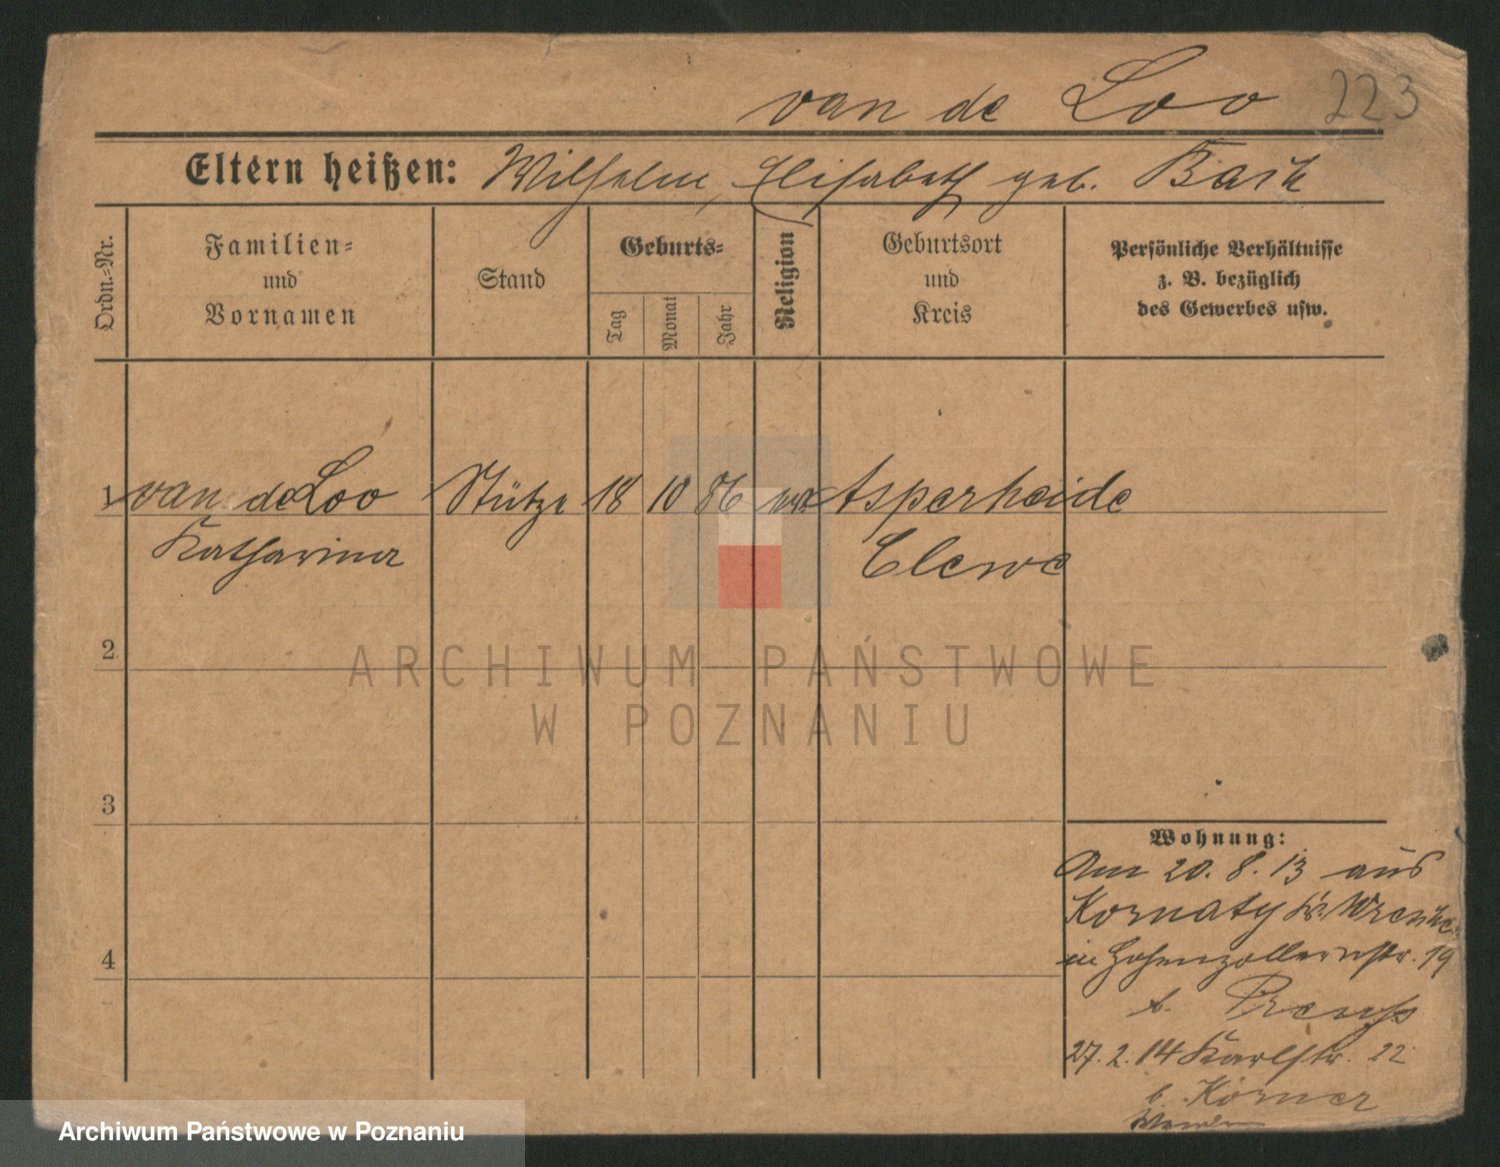 van de Loo 223
Eltern heißen: Wilhelm, Elisabeth geb.
Ordn.-Nr.
Familien-
und
Vornamen
Stand
Geburts-
Tag
Monat
Jahr
Religion
Geburtsort
und
Kreis
Persönliche Verhältnisse
z. B. bezüglich
des Gewerbes usw.
1 van de Loo Stütze 18 10 86 Asperheide
Katharina Cleve
2
ARCHIWUM PAŃSTWOWE
W POZNANIU
3
Wohnung:
Am 20. 8. 13 aus
Kornaty Kr. Wreschen
in Hohenzollernstr. 19
b. Preuss
4
27. 2. 14 Karlstr. 22
b. Körner
Wenden
Archiwum Państwowe w Poznaniu